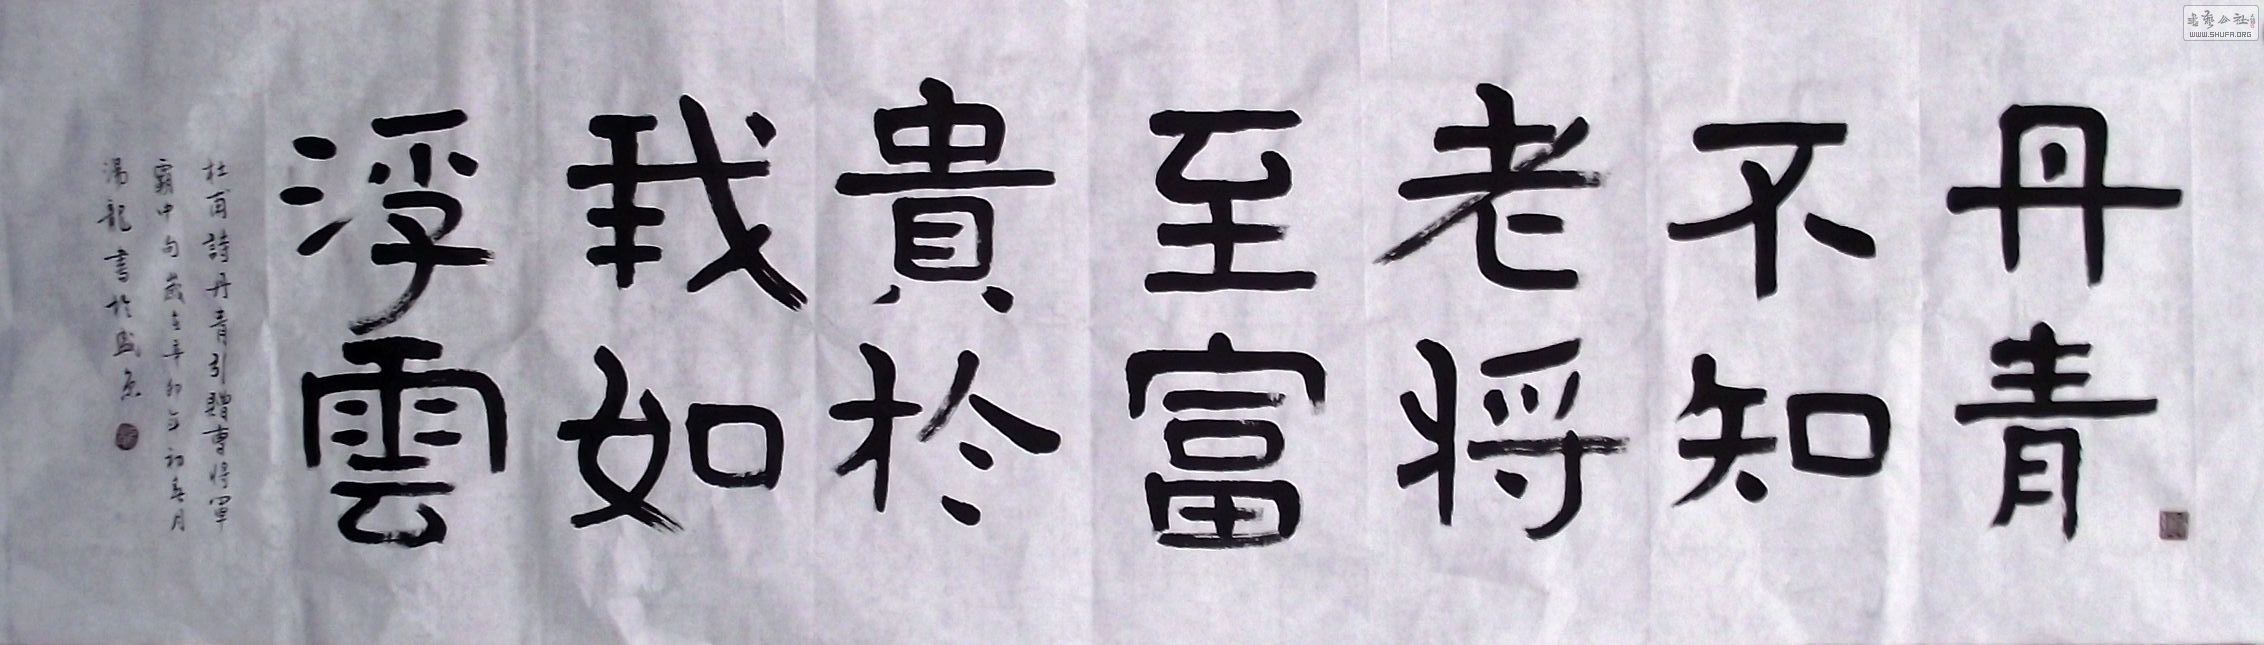 丹青
不知
老将
至富
貴於
我如
浮雲
杜甫詩丹青引贈曹将軍
霸中句歲在辛卯年初春月
湯龍書於
书艺公社
WWW.SHUFA.ORG